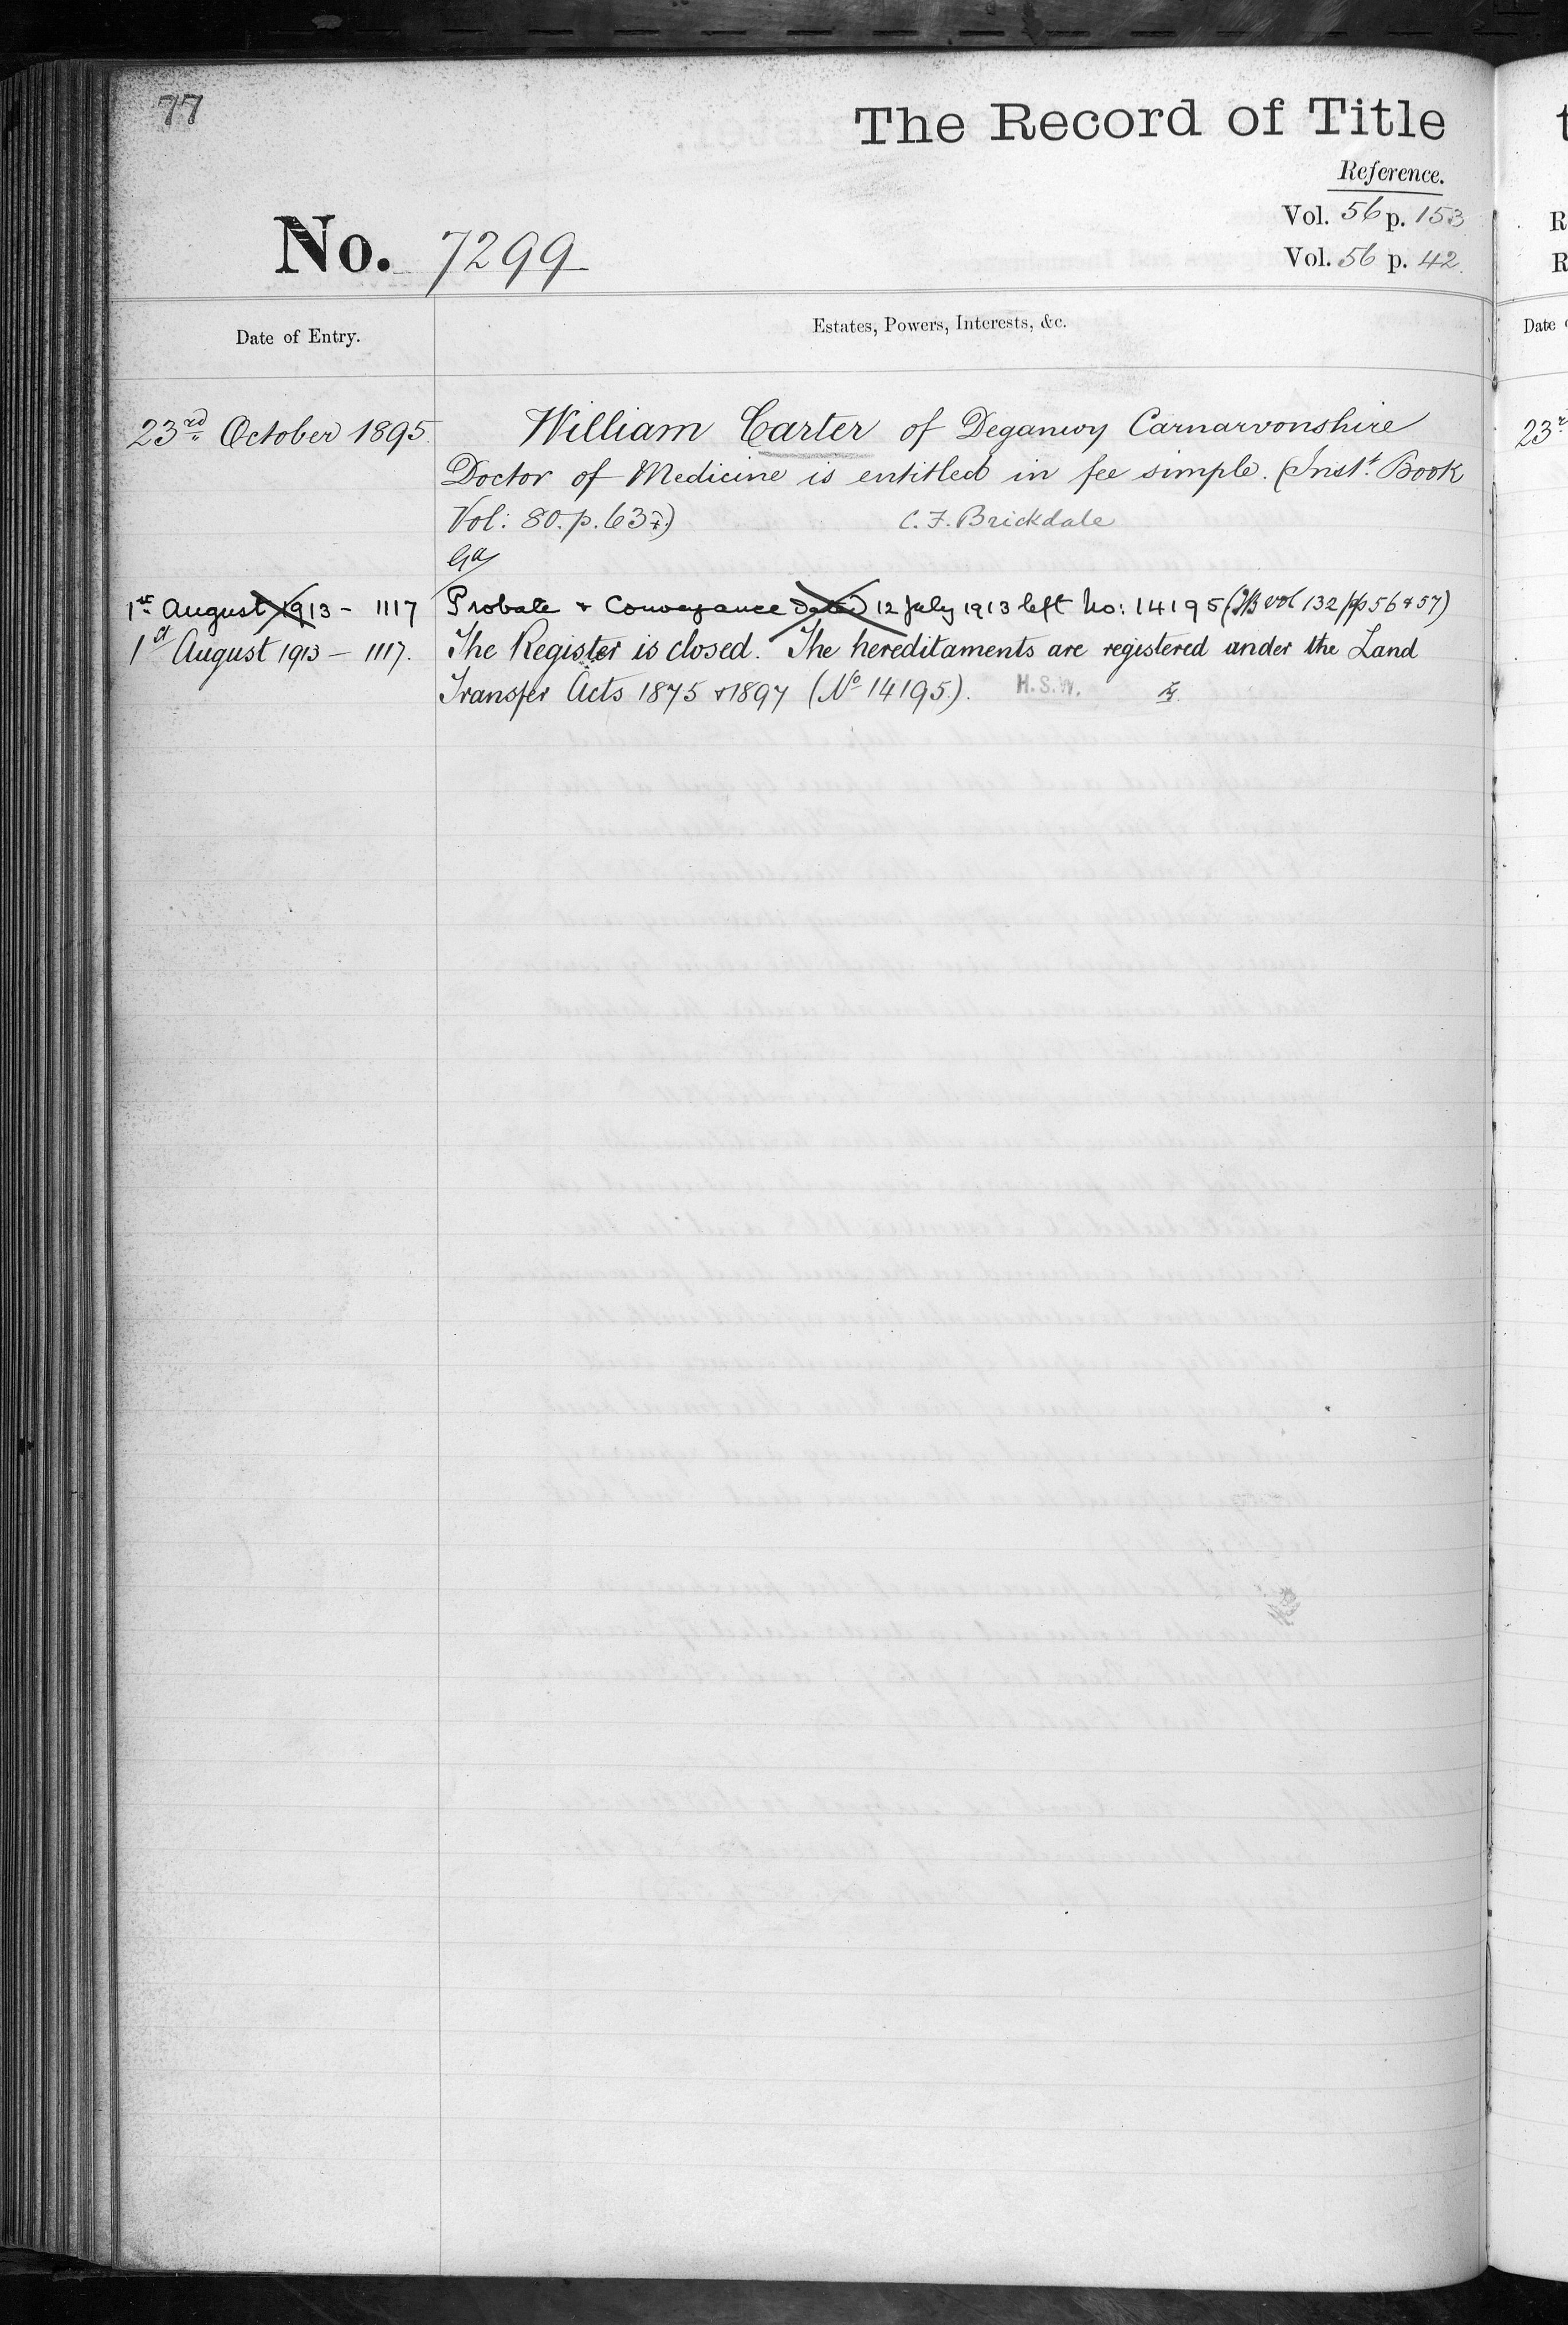 77
The Record of Title
Reference.
Vol. 56 p. 153
No. 7299
Vol. 56 p. 42
Date of Entry.
Estates, Powers, Interests, &c.
23rd October 1895.
William Carter of Deganwy Carnarvonshire
Doctor of Medicine is entitled in fee simple. (Inst. Book
Vol: 80. p. 637.)
C. F. Brickdale
1st August 1913 - 1117
Probate & Conveyance dated 12 July 1913 left No: 14195 (IB vol 132 pp 56 & 57)
1st August 1913 - 1117.
The Register is closed. The hereditaments are registered under the Land
Transfer Acts 1875 & 1897 (No 14195).
H.S.W.
Date
23r